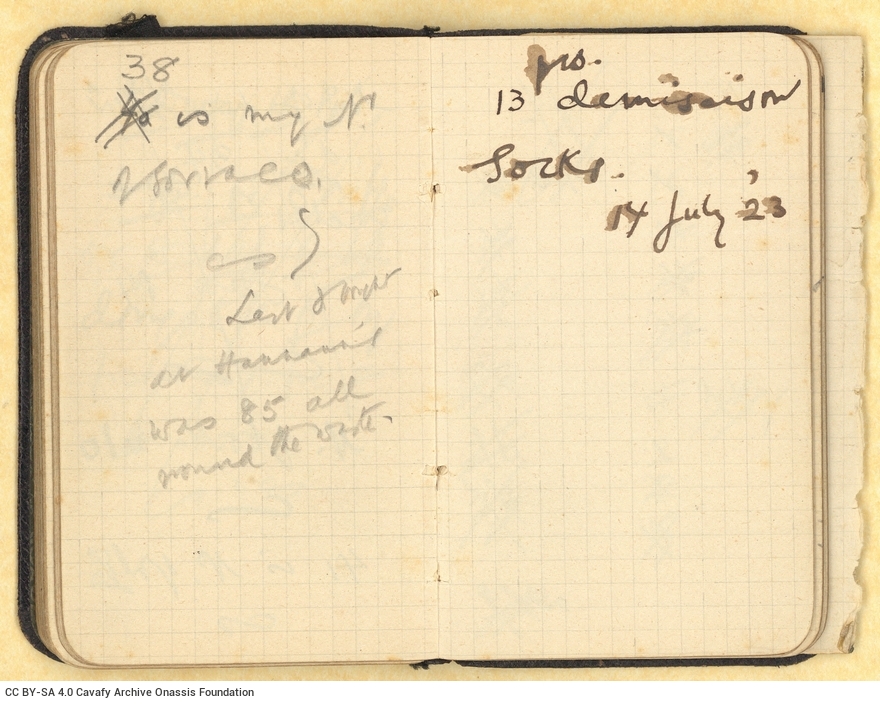 38
is my N.º
as
Last I bought
at Hannaux's
was 85 all
round the waste.
prs.
13 demisaison
Socks.
14 July '23
CC BY-SA 4.0 Cavafy Archive Onassis Foundation